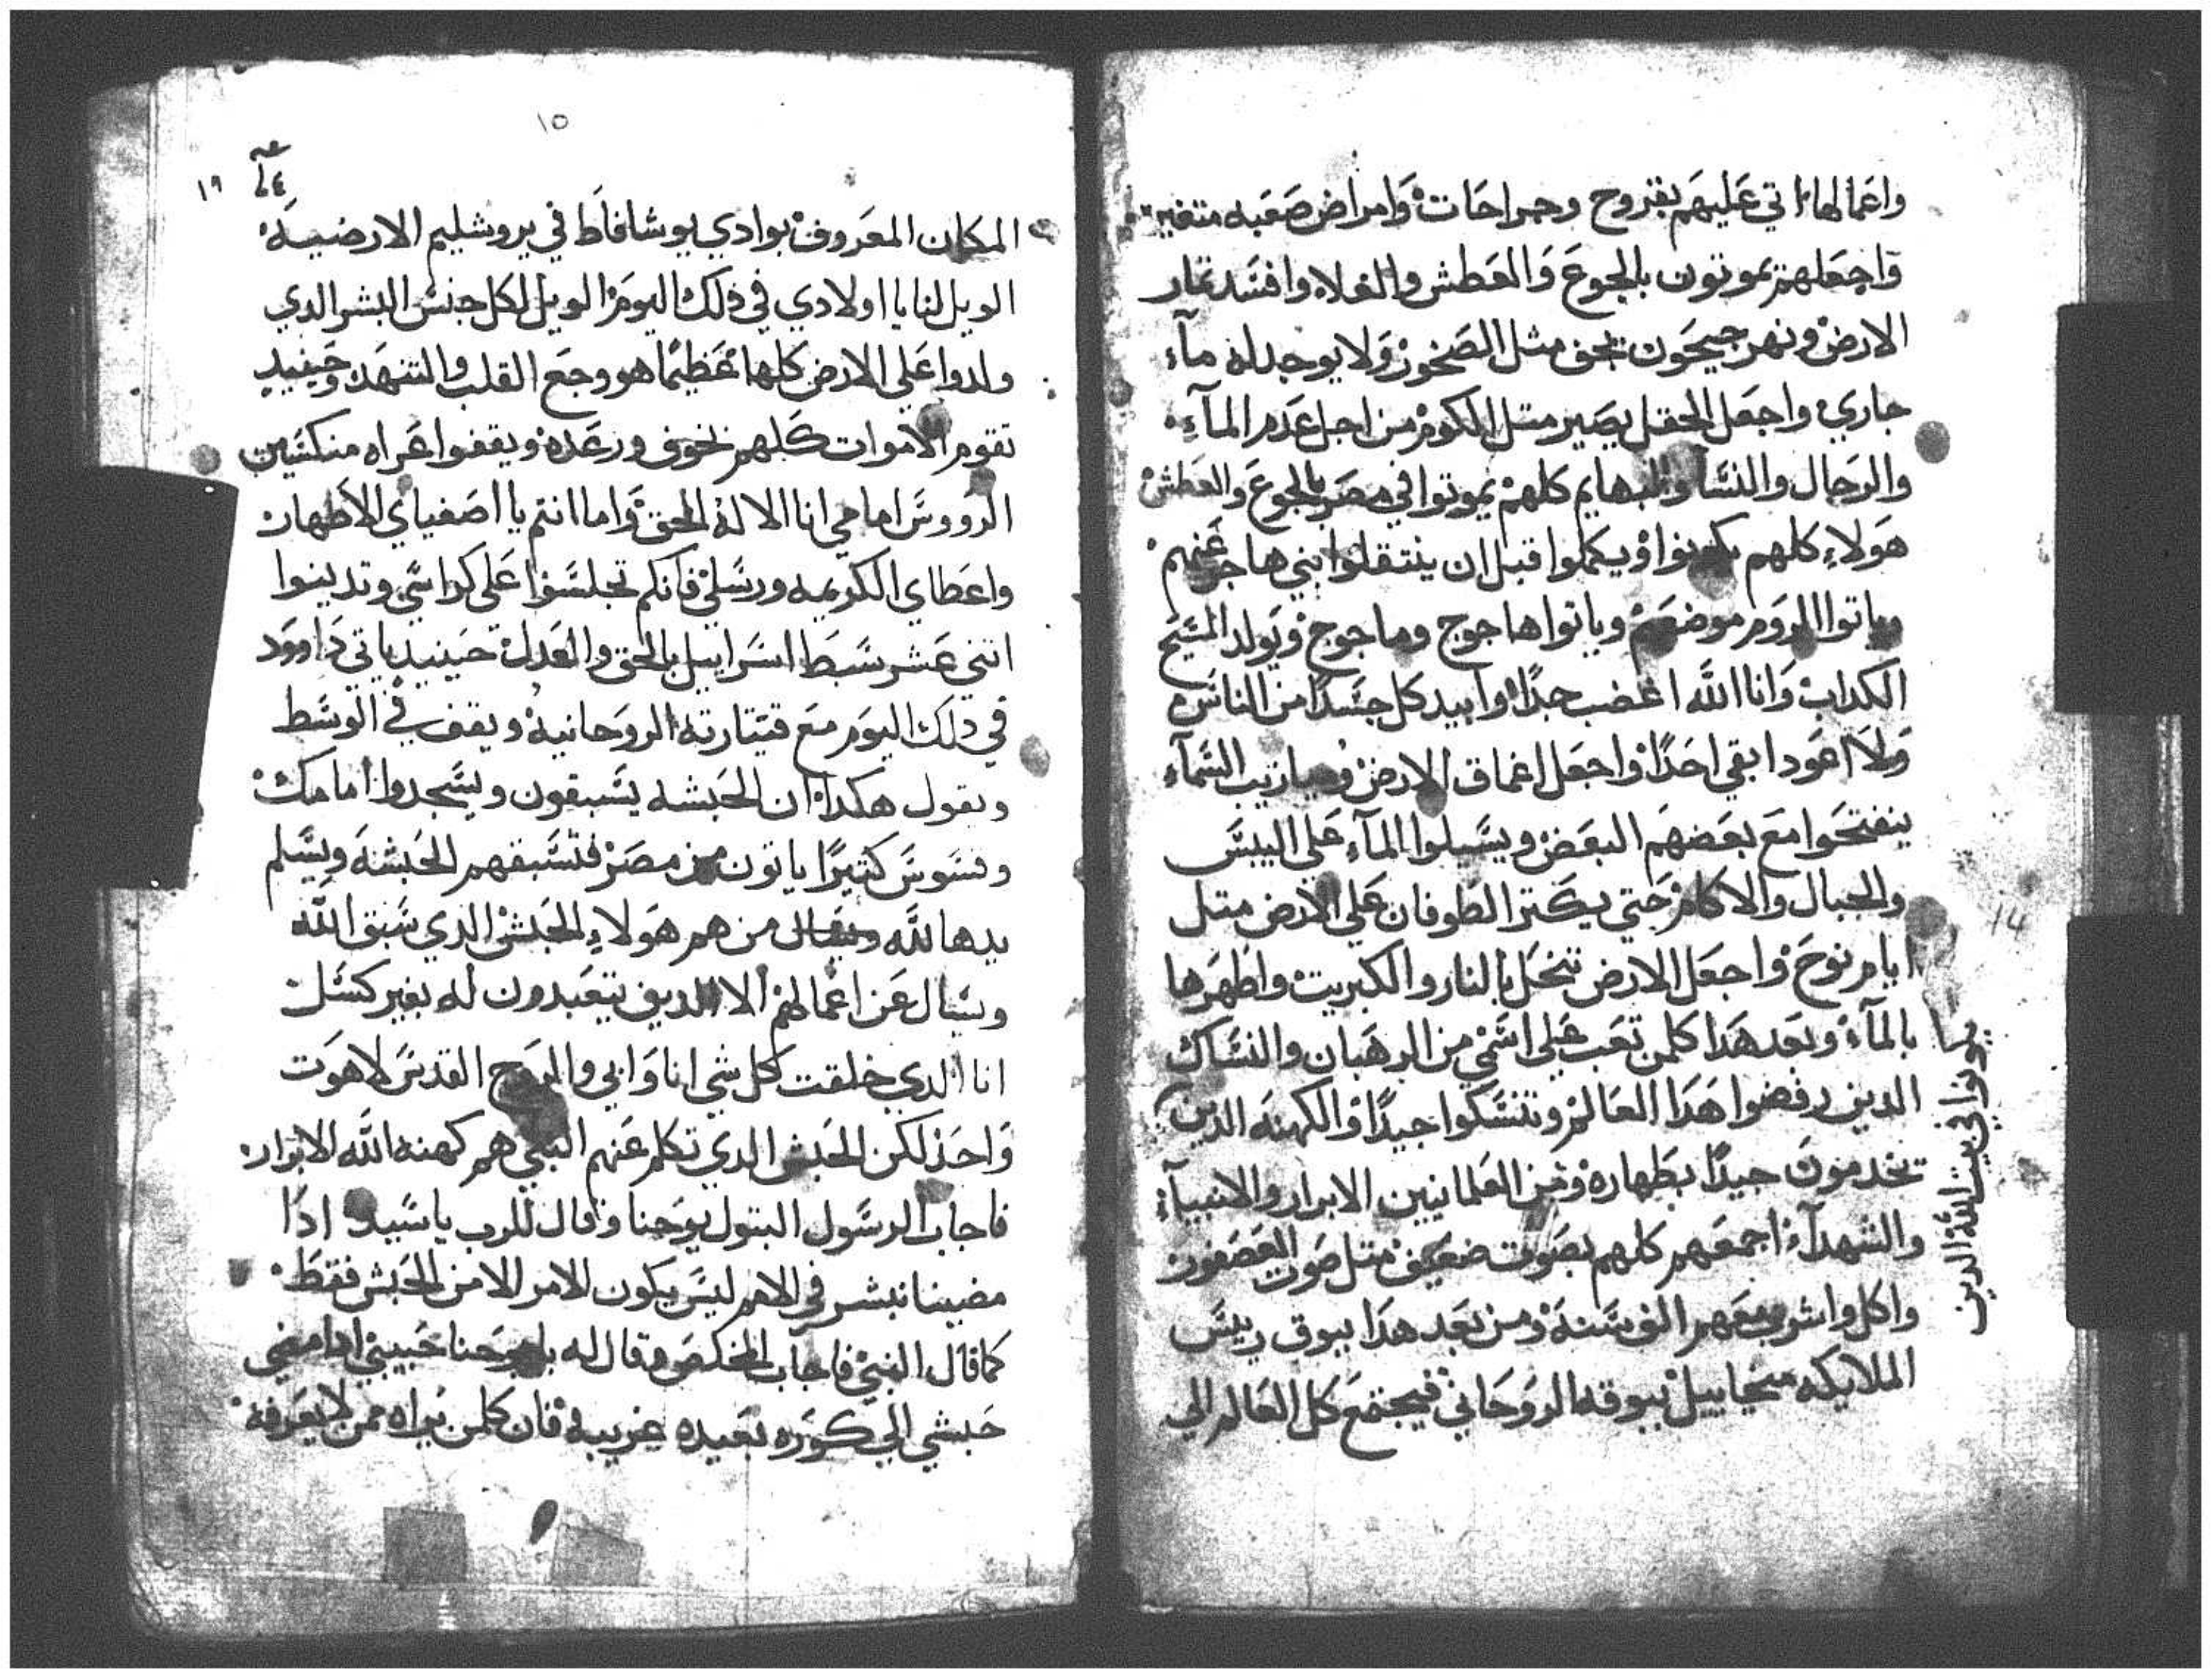 واعمالها اتي عليهم بقروح وجراحات وامراض صعبه متغيره
واجعلهم يموتون بالجوع والعطش والغلا وافسد ثمار
الارض ونهر جيحون يجف مثل الصخور ولا يوجد له مآء
جاري واجعل الحقل يصير متل الكوم من اجل عدم المآء
والرجال والنسآ والبهايم كلهم يموتوا في مصر بالجوع والعطش
هولاء كلهم يكونوا ويكملوا قبل ان ينتقلوا بني هاجر عنهم
وياتوا الروم موضعهم وياتوا هاجوج وماجوج ويولد المسيح
الكداب وانا الله اغضب جدًا وابيد كل جسدًا من الناس
ولا اعود ابقي احدًا واجعل اعماق الارض وميازيب السمآء
ينفتحوا مع بعضهم البعض ويسيلوا المآء علي اليبس
والجبال والاكام حتي يكتر الطوفان علي الارض متل
ايام نوح واجعل الارض تنحل بالنار والكبريت واطهرها
بالمآء وبعد هدا كلمن تعب علي اسمي من الرهبان والنساك
الدين رفضوا هدا العالم وتنسكوا جيدًا والكهنه الدين
يخدمون جيدًا بطهاره ومن العلمانيين الابرار والانبيآء
والشهدآء اجمعهم كلهم بصوت ضعيف متل صوت العصفور
واكل واشرب معهم الف سنه ومن بعد هدا يبوق رييس
الملايكه ميخاييل ببوقه الروحاني فيجتمع كل العالم الي
يهونوا في بيت الله الدين
14
١٥
١٩
المكان المعروف بوادي يوشافاط في يروشليم الارضيه
الويل لنا يا اولادي في ذلك اليوم الويل لكل جنس البشر الدي
ولدوا علي الارض كلها عظيمًا هو وجع القلب والتنهد وحينيد
تقوم الاموات كلهم بخوف ورعده ويقفوا عراه منكسين
الرووس امامي انا الاله الحق واما انتم يا اصفياي الاطهار
واعطاي الكريمه ورسلي فانكم تجلسوا علي كراسي وتدينوا
اتني عشر سبط اسراييل بالحق والعدل حينيد ياتي داوود
في دلك اليوم مع قيتارته الروحانية ويقف في الوسط
ويقول هكدا ان الحبشه يسبقون ويسجدوا امامك
وقسوس كتيرًا ياتون من مصر فتسبقهم الحبشه ويسلم
يدها لله ويقال من هم هولاء الحبش الدي سبق الله
وسال عن اعمالهم الا الدين يتعبدون له بغير كسل
انا الدي خلقت كل شي انا وابي والروح القدس لاهوت
واحد لكن الحبش الدي تكلم عنهم النبي هم كهنه الله الابرار
فاجاب الرسول البتول يوحنا وقال للرب يا سيد ادا
مضينا نبشر في الامم ليس يكون الامر الا من الحبش فقط
كما قال النبي فاجاب المخلص وقال له يا يوحنا حبيبي ادا مضي
حبشي الي كوره بعيده غريبه فان كلمن يراه ممن لا يعرفه